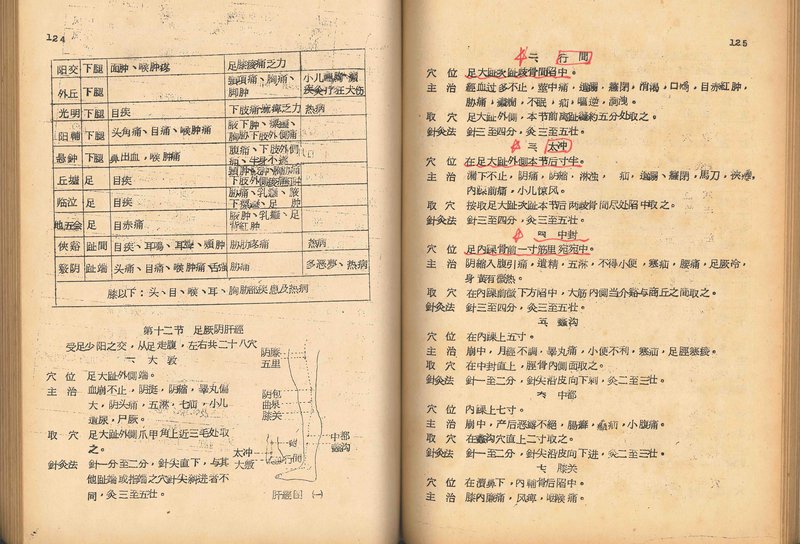 124
阳交 下腿 面肿、喉肿疼 足膝酸痛乏力
外丘 下腿 頸項痛、胸痛、胸肿
光明 下腿 目疾 下肢痛麻痹乏力 热病
阳輔 下腿 头角痛、目痛、喉肿痛 腋下肿、胸胁下肢外側痛
悬鈡 下腿 鼻出血，喉肿痛
丘墟 足 目疾
临泣 足 目疾 胁痛、乳腫、腋下
地五会 足 目赤痛 腋肿、乳腫、足背紅肿
俠谿 趾間 目疾、耳鳴、耳聋、頰肿 胁肋疼痛 热病
竅阴 趾端 头痛、目痛、喉肿痛、舌强 胁痛 多恶夢、热病
膝以下：头、目、喉、耳、胸胁部疾患及热病
第十二节 足厥阴肝經
受足少阳之交，从足走腹，左右共二十八穴
一、大敦
穴位 足大趾外側端。
主治 血崩不止，阴挺，阴縮，睾丸偏
大，阴头痛，五淋，七疝，小儿
遺尿，尸厥。
取穴 足大趾外側爪甲角上近三毛处取
之。
針灸法 針一分至二分，針尖直下，与其
他趾端或指端之穴針尖斜进者不
同，灸三至五壮。
阴廉
五里
阴包
曲泉
膝关
中都
蠡沟
太冲
大敦
行間
肝經图（一）
125
二、行間
穴位 足大趾次趾歧骨間陷中。
主治 經血过多不止，莖中痛，遺溺，癃閉，消渴，口喎，目赤紅肿，
胁痛，癲癇，不眠，疝，嘔逆，洞洩。
取穴 足大趾外側，本节前离趾縫約五分处取之。
針灸法 針三至四分，灸三至五壮。
三、太冲
穴位 在足大趾外側本节后寸半。
主治 漏下不止，阴痛，阴縮，淋浊，疝，遺溺，癃閉，馬刀，
内踝前痛，小儿惊风。
取穴 按取足大趾次趾本节后两歧骨間尽处陷中取之。
針灸法 針三至四分，灸三至五壮。
四、中封
穴位 足内踝骨前一寸筋里宛宛中。
主治 阴縮入腹引痛，遺精，五淋，不得小便，寒疝，腰痛，足厥冷，
身黃有微热。
取穴 在内踝前微下方陷中，大筋内側当介谿与商丘之間取之。
針灸法 針三至四分，灸三至五壮。
五、蠡沟
穴位 在内踝上五寸。
主治 崩中，月經不調，睾丸痛，小便不利，寒疝，足脛寒酸。
取穴 在中封直上，脛骨内側面取之。
針灸法 針一至二分，針尖沿皮向下刺，灸二至三壮。
六、中都
穴位 内踝上七寸。
主治 崩中，产后恶露不絕，腸癖，疝，小腹痛。
取穴 在蠡沟穴直上二寸取之。
針灸法 針一至二分，針尖沿皮向下进，灸二至三壮。
七、膝关
穴位 在犢鼻下，内輔骨后陷中。
主治 膝内腋痛，风痺，咽喉痛。